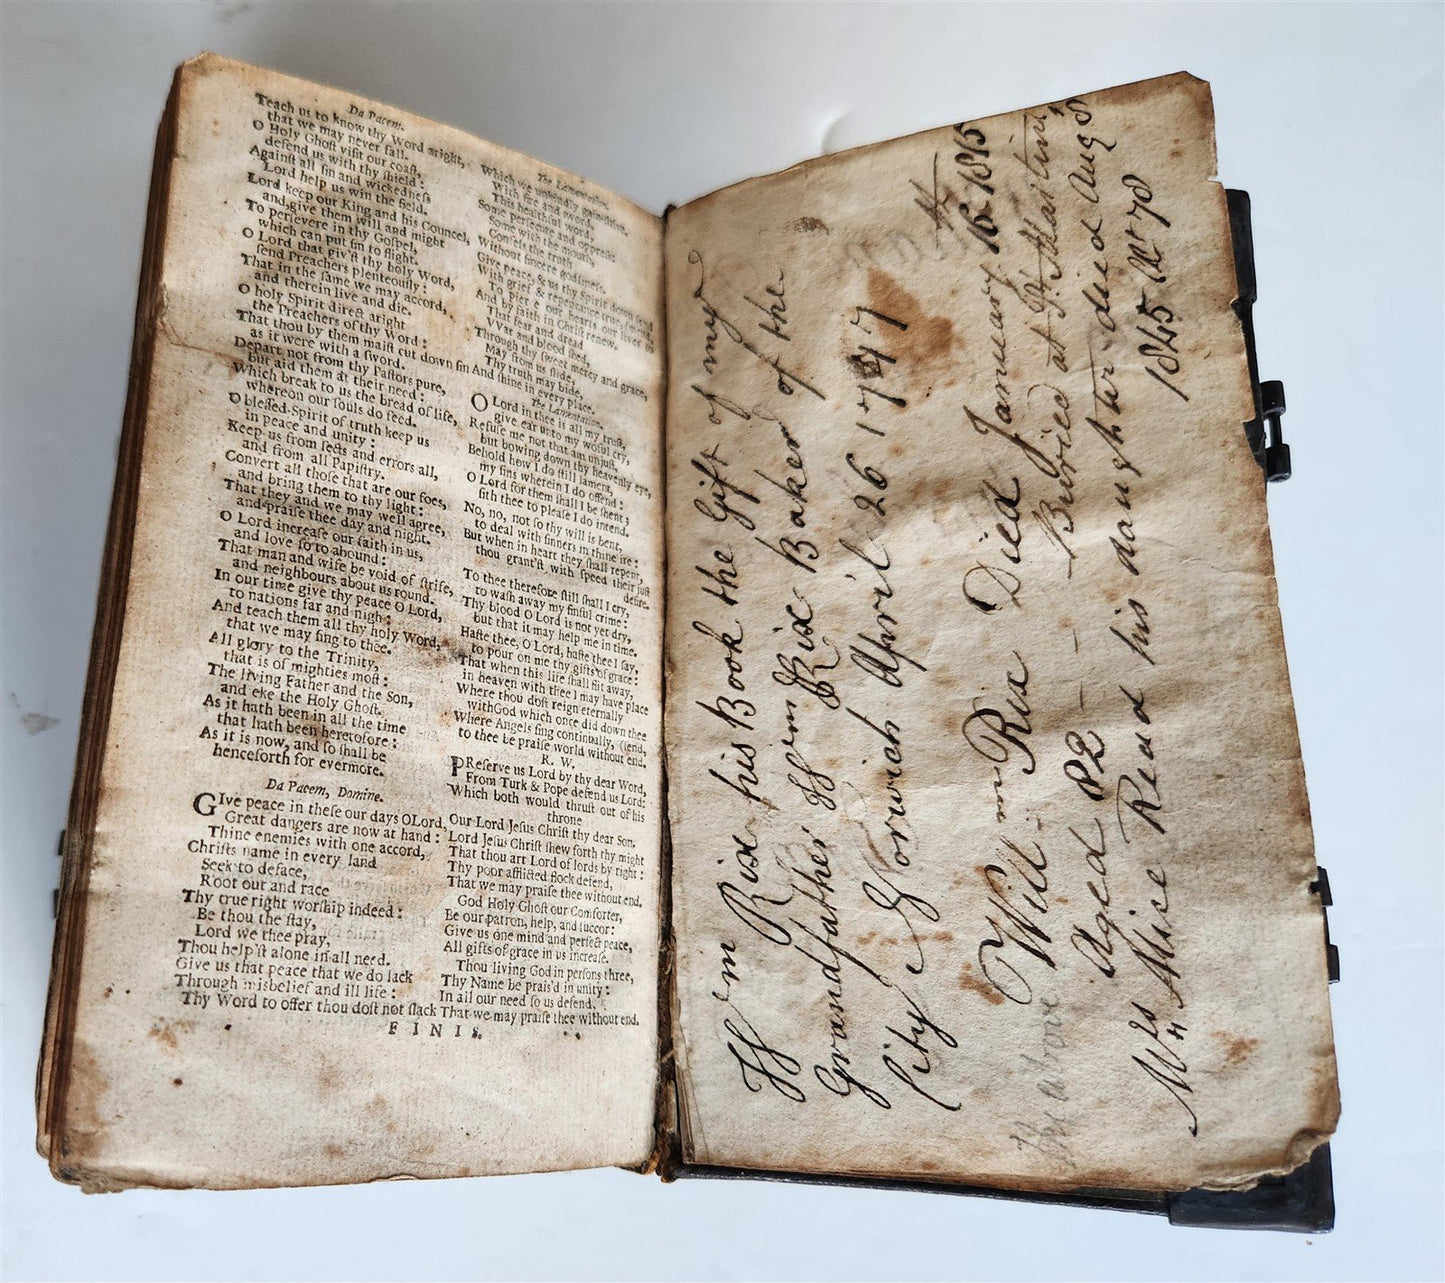 Da Pacem.
Teach us to know thy Word aright,
that we may never fall.
O Holy Ghoſt viſit our coaſt,
defend us with thy ſhield:
Againſt all ſin and wickedneſs
Lord help us win the field.
Lord keep our King and his Councel,
and give them will and might
To perſevere in thy Goſpel,
which can put ſin to flight.
O Lord that giv'ſt thy holy Word,
ſend Preachers plenteouſly:
That in the ſame we may accord,
and therein live and die.
O holy Spirit direct aright
the Preachers of thy Word:
That thou by them maiſt cut down ſin
as it were with a ſword.
Depart not from thy Paſtors pure,
but aid them at their need:
Which break to us the bread of life,
whereon our ſouls do feed.
O bleſſed Spirit of truth keep us
in peace and unity:
Keep us from ſects and errors all,
and from all Papiſtry.
Convert all thoſe that are our foes,
and bring them to thy light:
That they and we may well agree,
and praiſe thee day and night.
O Lord increaſe our faith in us,
and love ſo to abound:
That man and wife be void of ſtrife,
and neighbours about us round.
In our time give thy peace O Lord,
to nations far and nigh:
And teach them all thy holy Word,
that we may ſing to thee.
All glory to the Trinity,
that is of mighties moſt:
The living Father and the Son,
and eke the Holy Ghoſt.
As it hath been in all the time
that hath been heretofore:
As it is now, and ſo ſhall be
henceforth for evermore.
Da Pacem, Domine.
GIve peace in theſe our days O Lord,
Great dangers are now at hand:
Thine enemies with one accord,
Chriſts name in every land
Seek to deface,
Root out and race
Thy true right worſhip indeed:
Be thou the ſtay,
Lord we thee pray,
Thou help'ſt alone in all need.
Give us that peace that we do lack
Through misbelief and ill life:
Thy Word to offer thou doſt not ſlack
The Lamentation.
Which we unkindly gainſtrive.
With fire and ſword,
This healthful word,
Some perſecute and oppreſſe
Some with the mouth,
Confeſs the truth,
Without ſincere godlineſs.
Give peace, & us thy Spirit down ſend
With grief & repentance true
To pierce our hearts our lives to
And by faith in Chriſt renew.
That fear and dread
VVar and blood ſhed,
Through thy ſweet mercy and grace,
May from us ſlide,
Thy truth may bide,
And ſhine in every place.
The Lamentation.
O Lord in thee is all my truſt,
give ear unto my woful cry,
Refuſe me not that am unjuſt,
but bowing down thy heavenly eye,
Behold how I do ſtill lament,
my ſins wherein I do offend:
O Lord for them ſhall I be ſhent;
ſith thee to pleaſe I do intend.
No, no, not ſo thy will is bent,
to deal with ſinners in thine ire:
But when in heart they ſhall repent,
thou grant'ſt with ſpeed their juſt
deſire.
To thee therefore ſtill ſhall I cry,
to waſh away my ſinful crime:
Thy blood O Lord is not yet dry,
but that it may help me in time.
Haſte thee, O Lord, haſte thee I ſay,
to pour on me thy gifts of grace:
That when this life ſhall flit away,
in heaven with thee I may have place
Where thou doſt reign eternally
with God which once did down thee
Where Angels ſing continually, (ſend,
to thee be praiſe world without end.
R. W.
PReſerve us Lord by thy dear Word,
From Turk & Pope defend us Lord:
Which both would thruſt out of his
throne
Our Lord Jeſus Chriſt thy dear Son.
Lord Jeſus Chriſt ſhew forth thy might
That thou art Lord of lords by right:
Thy poor afflicted flock defend,
That we may praiſe thee without end.
God Holy Ghoſt our Comforter,
Be our patron, help, and ſuccor:
Give us one mind and perfect peace,
All gifts of grace in us increaſe.
Thou living God in perſons three,
Thy Name be prais'd in unity:
In all our need ſo us defend,
That we may praiſe thee without end.
FINIS.
Wm Rix his Book the Gift of my
Grandfather Wm Rix Baker of the
City Norwich April 26 1747
The above Will-m Rix Died January 16th 1815
Aged 82 - - Buried at St Martins
Mrs Alice Read his daughter died Aug 8
1845 Æt 78